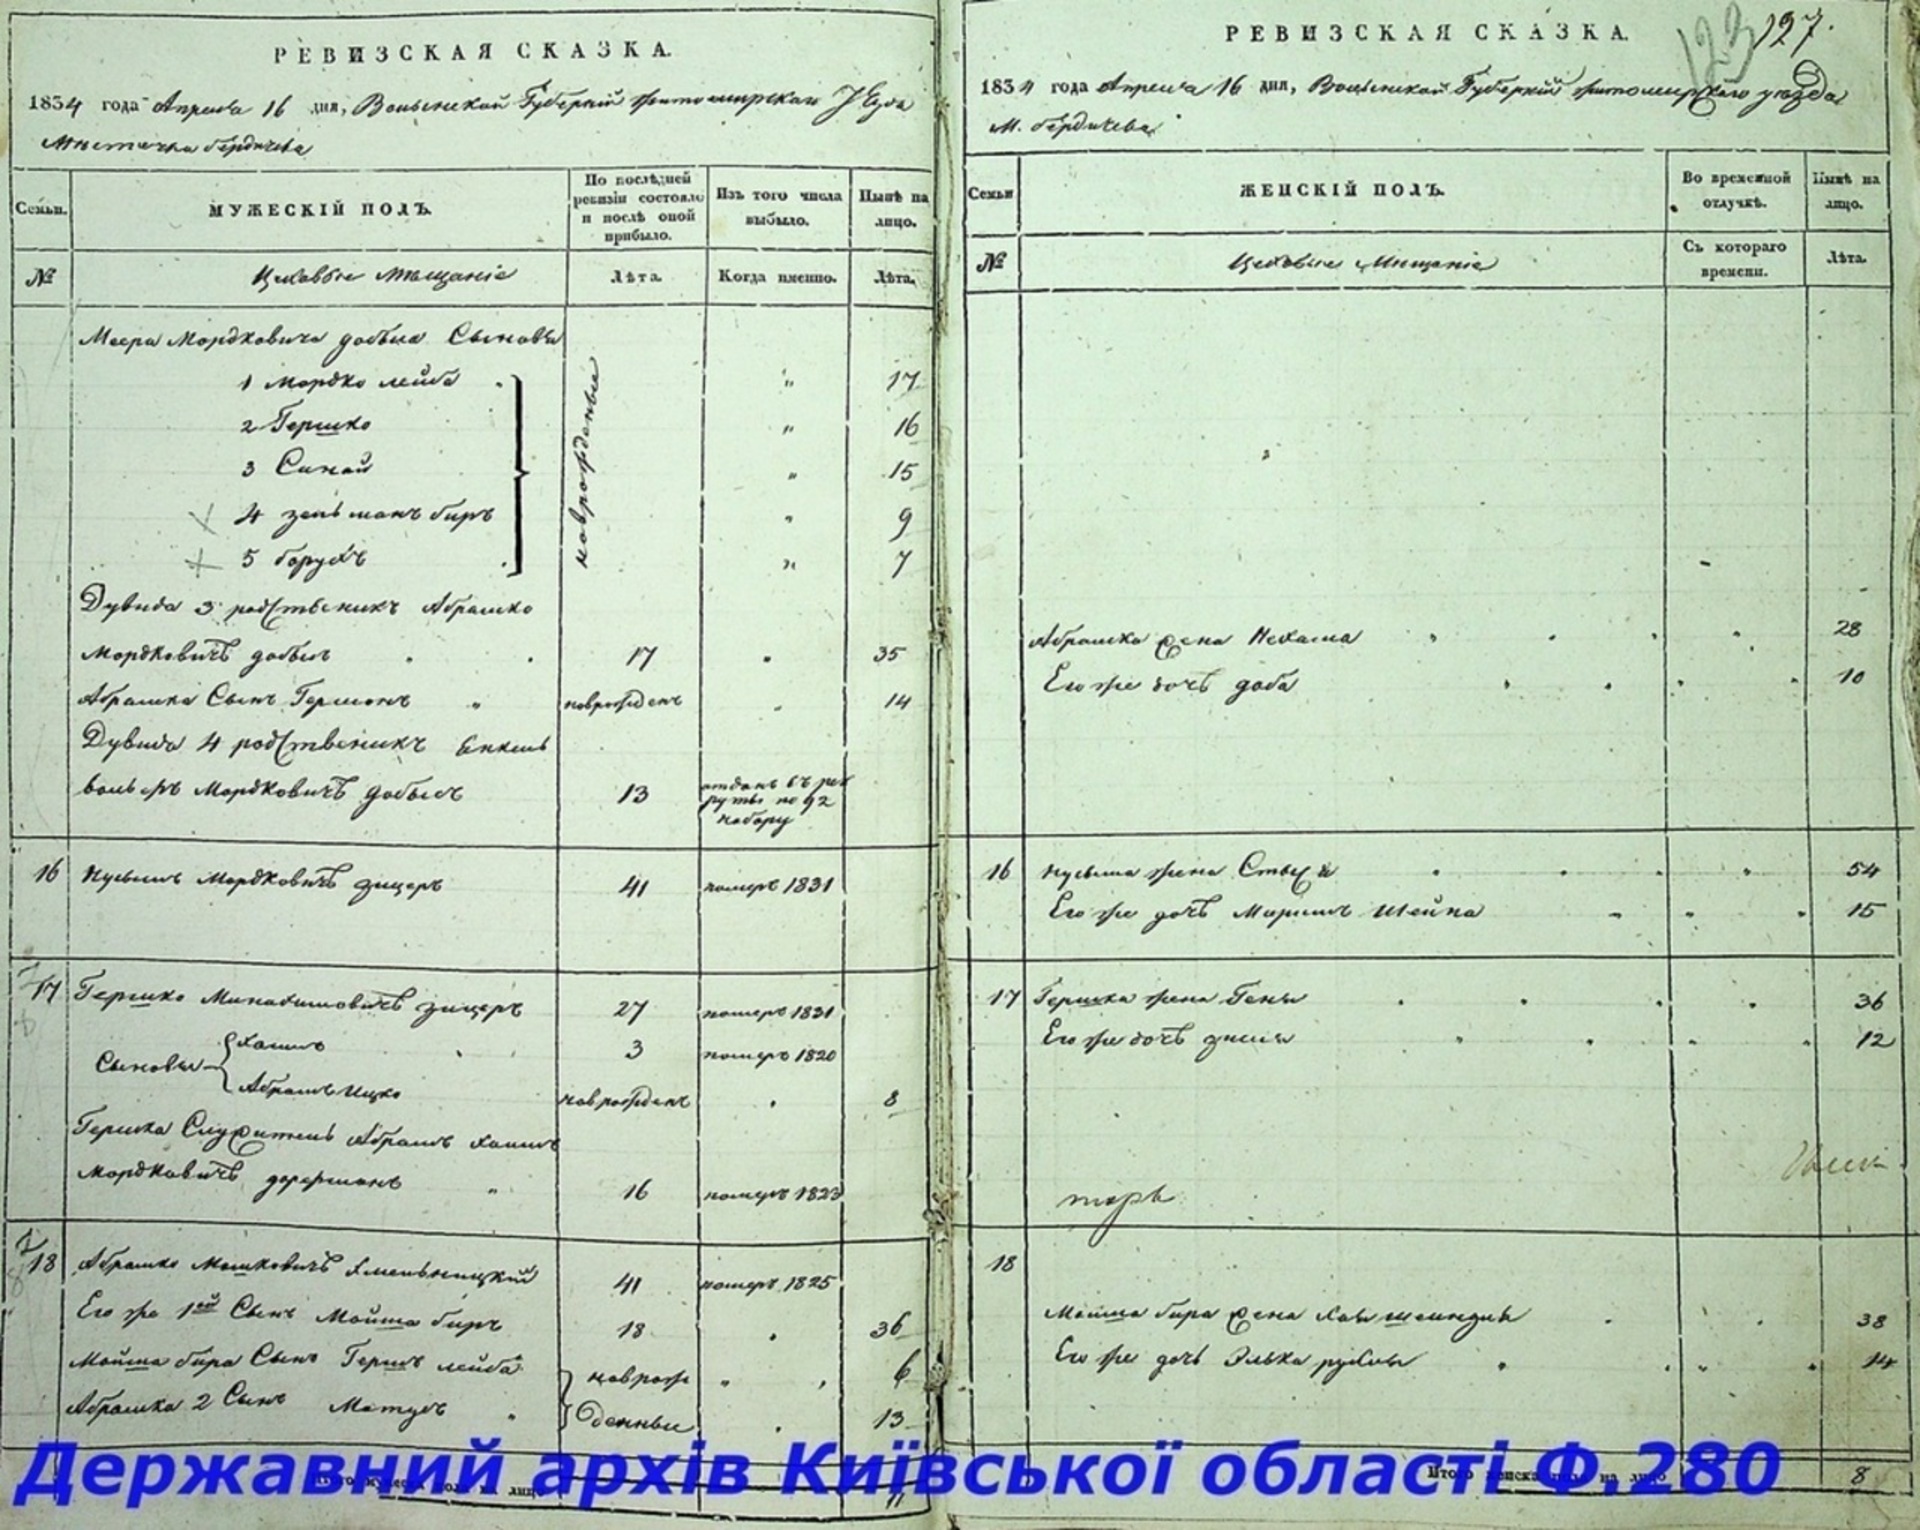 РЕВИЗСКАЯ СКАЗКА.
1834 года Апреля 16 дня, Волынской Губерніи Житомирскаго Уезда
Местечка Бердичева
Семьи.
МУЖЕСКІЙ ПОЛЪ.
По послѣдней ревизіи состояло и послѣ оной прибыло.
Изъ того числа выбыло.
Нынѣ на лицо.
№
Цеховые Мещаніе
Лѣта.
Когда именно.
Лѣта.
Меера Мордковича Сыновья
1 Мордко Лейба " 17
2 Гершко " 16
3 Синай " 15
4 Зельман Бир " 9
5 Борухъ " 7
новрожденые
Дувида 3 родственикъ Абрамко
Мордковичъ 17 " 35
Абрамка Сынъ Гершонъ " новрожденъ " 14
Дувида 4 родственикъ Енкель
Вольфъ Мордковичъ 13 отданъ въ рекруты по 92 набору
16 Нусимъ Мордковичъ Зицеръ 41 померъ 1831
17 Гершко Зицеръ 27 померъ 1831
Сыновья Хаимъ 3 померъ 1820
Абрамъ Ицко новрожденъ " 8
Гершка Служитель Абрамъ Хаимъ
Мордковичъ " 16 померъ 1823
18 Абрамко Мошковичъ Хмельницкий 41 померъ 1825
Его же 1ой Сынъ Мойша Биръ 18 " 36
Мойша Бира Сынъ Гершъ Лейба новрож " 6
Абрамка 2 Сынъ " денные " 13
Итого мужеска пола на лицо 11
РЕВИЗСКАЯ СКАЗКА.
123 127.
1834 года Апреля 16 дня, Волынской Губерніи Житомирскаго уезда
М. Бердичева
Семьи
ЖЕНСКІЙ ПОЛЪ.
Во временной отлучкѣ.
Нынѣ на лицо.
№
Цеховые Мещаніе
Съ котораго времени.
Лѣта.
Абрамка жена Нехама " 28
Его же дочь Доба " 10
16 Нусима жена " 54
Его же дочь Мириамъ Шейна " 15
17 Гершка жена Геня " 36
Его же дочь " 12
18
Мойша Бира жена 38
Его же дочь Элька Рухля " 14
Итого женска пола на лицо 8
Державний архів Київської області Ф.280